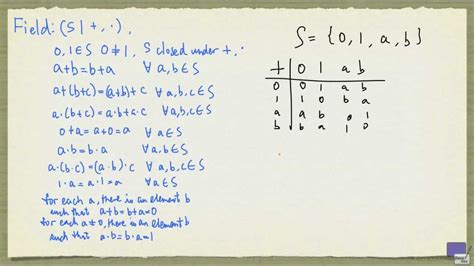 Field: (S | +, ·),
0,1∈S 0≠1, S closed under +, ·
a+b=b+a ∀ a,b∈S
a+(b+c)=(a+b)+c ∀ a,b,c∈S
a·(b+c)=a·b+a·c ∀ a,b,c∈S
0+a=a+0=a ∀ a∈S
a·b=b·a ∀ a,b∈S
a·(b·c)=(a·b)·c ∀ a,b,c∈S
1·a=a·1=a ∀ a∈S
for each a, there is an element b
such that a+b=b+a=0
for each a≠0, there is an element b
such that a·b=b·a=1
S={0,1,a,b}
+ 0 1 a b
0 0 1 a b
1 1 0 b a
a a b 0 1
b b a 1 0